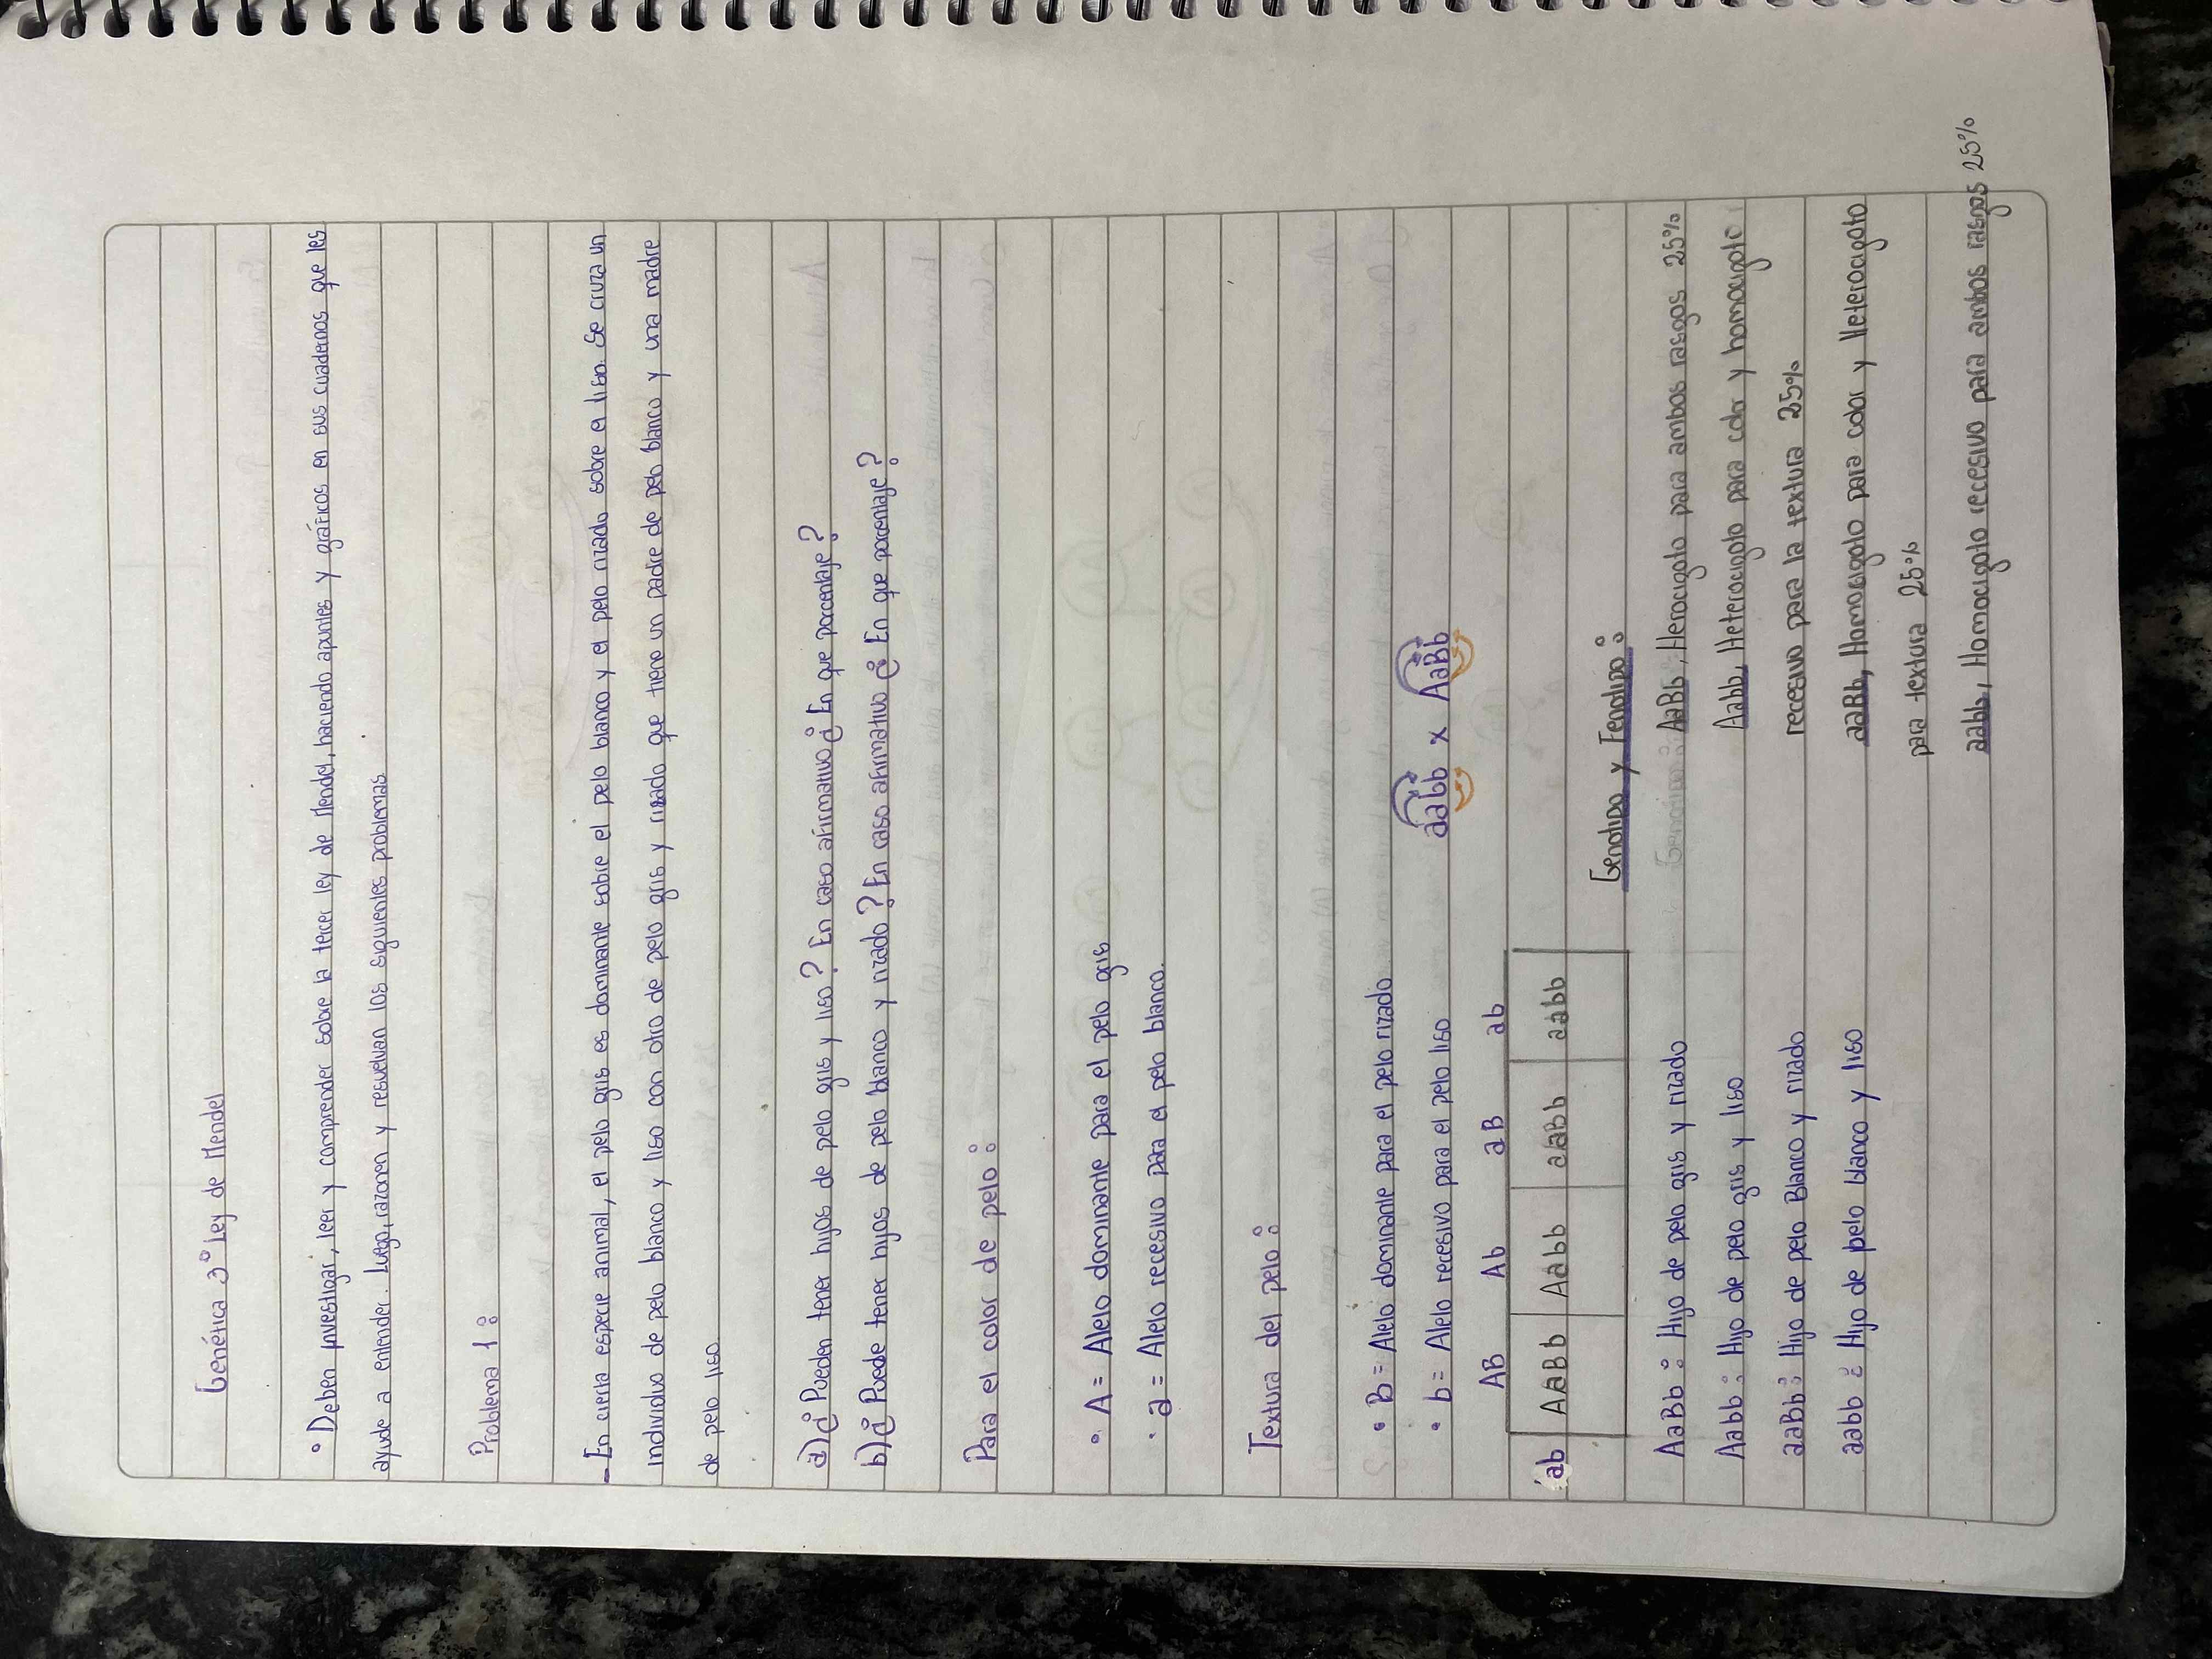 Genética 3° ley de Mendel
• Deben investigar, leer y comprender sobre la tercer ley de Mendel, haciendo apuntes y gráficos en sus cuadernos que les
ayude a entender. Luego, razonan y resuelvan los siguientes problemas
Problema 1:
- En cierta especie animal, el pelo gris es dominante sobre el pelo blanco y el pelo rizado sobre el liso. Se cruza un
individuo de pelo blanco y liso con otro de pelo gris y rizado que tiene un padre de pelo blanco y una madre
de pelo liso
a) ¿Pueden tener hijos de pelo gris y liso? En caso afirmativo ¿En qué porcentaje?
b) ¿Puede tener hijos de pelo blanco y rizado? En caso afirmativo ¿En qué porcentaje?
Para el color de pelo:
• A = Alelo dominante para el pelo gris
• a = Alelo recesivo para el pelo blanco.
Textura del pelo:
• B = Alelo dominante para el pelo rizado
• b = Alelo recesivo para el pelo liso
aabb x AaBb
AB Ab aB ab
ab AaBb Aabb aaBb aabb
Genotipo y Fenotipo:
AaBb: Hijo de pelo gris y rizado
Aabb: Hijo de pelo gris y liso
aaBb: Hijo de pelo Blanco y rizado
aabb: Hijo de pelo blanco y liso
AaBb, Herocigoto para ambos rasgos 25%
Aabb, Heterocigoto para color y homocigoto
recesivo para la textura 25%
aaBb, Homocigoto para color y Heterocigoto
para textura 25%
aabb, Homocigoto recesivo para ambos rasgos 25%